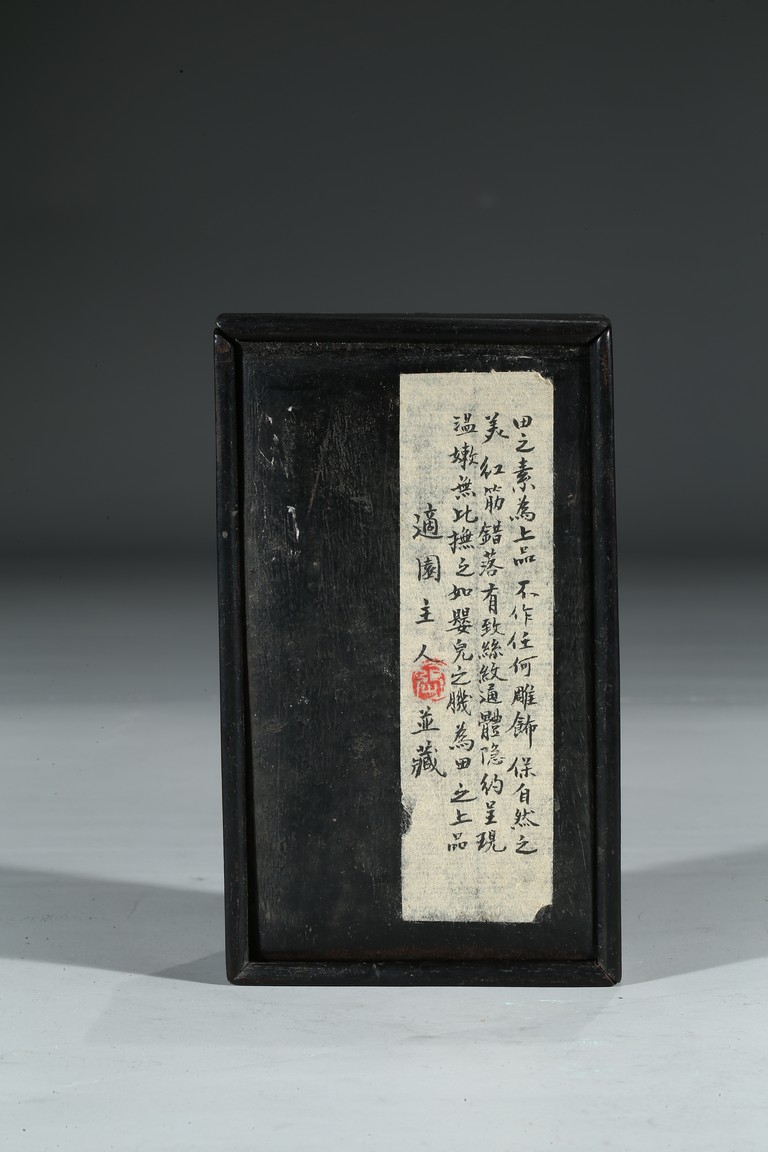 田之素為上品不作任何雕飾保自然之
美紅筋錯落有致絲紋通體隐約呈現
溫嫩無比撫之如嬰兒之膚為田之上品
適園主人並藏